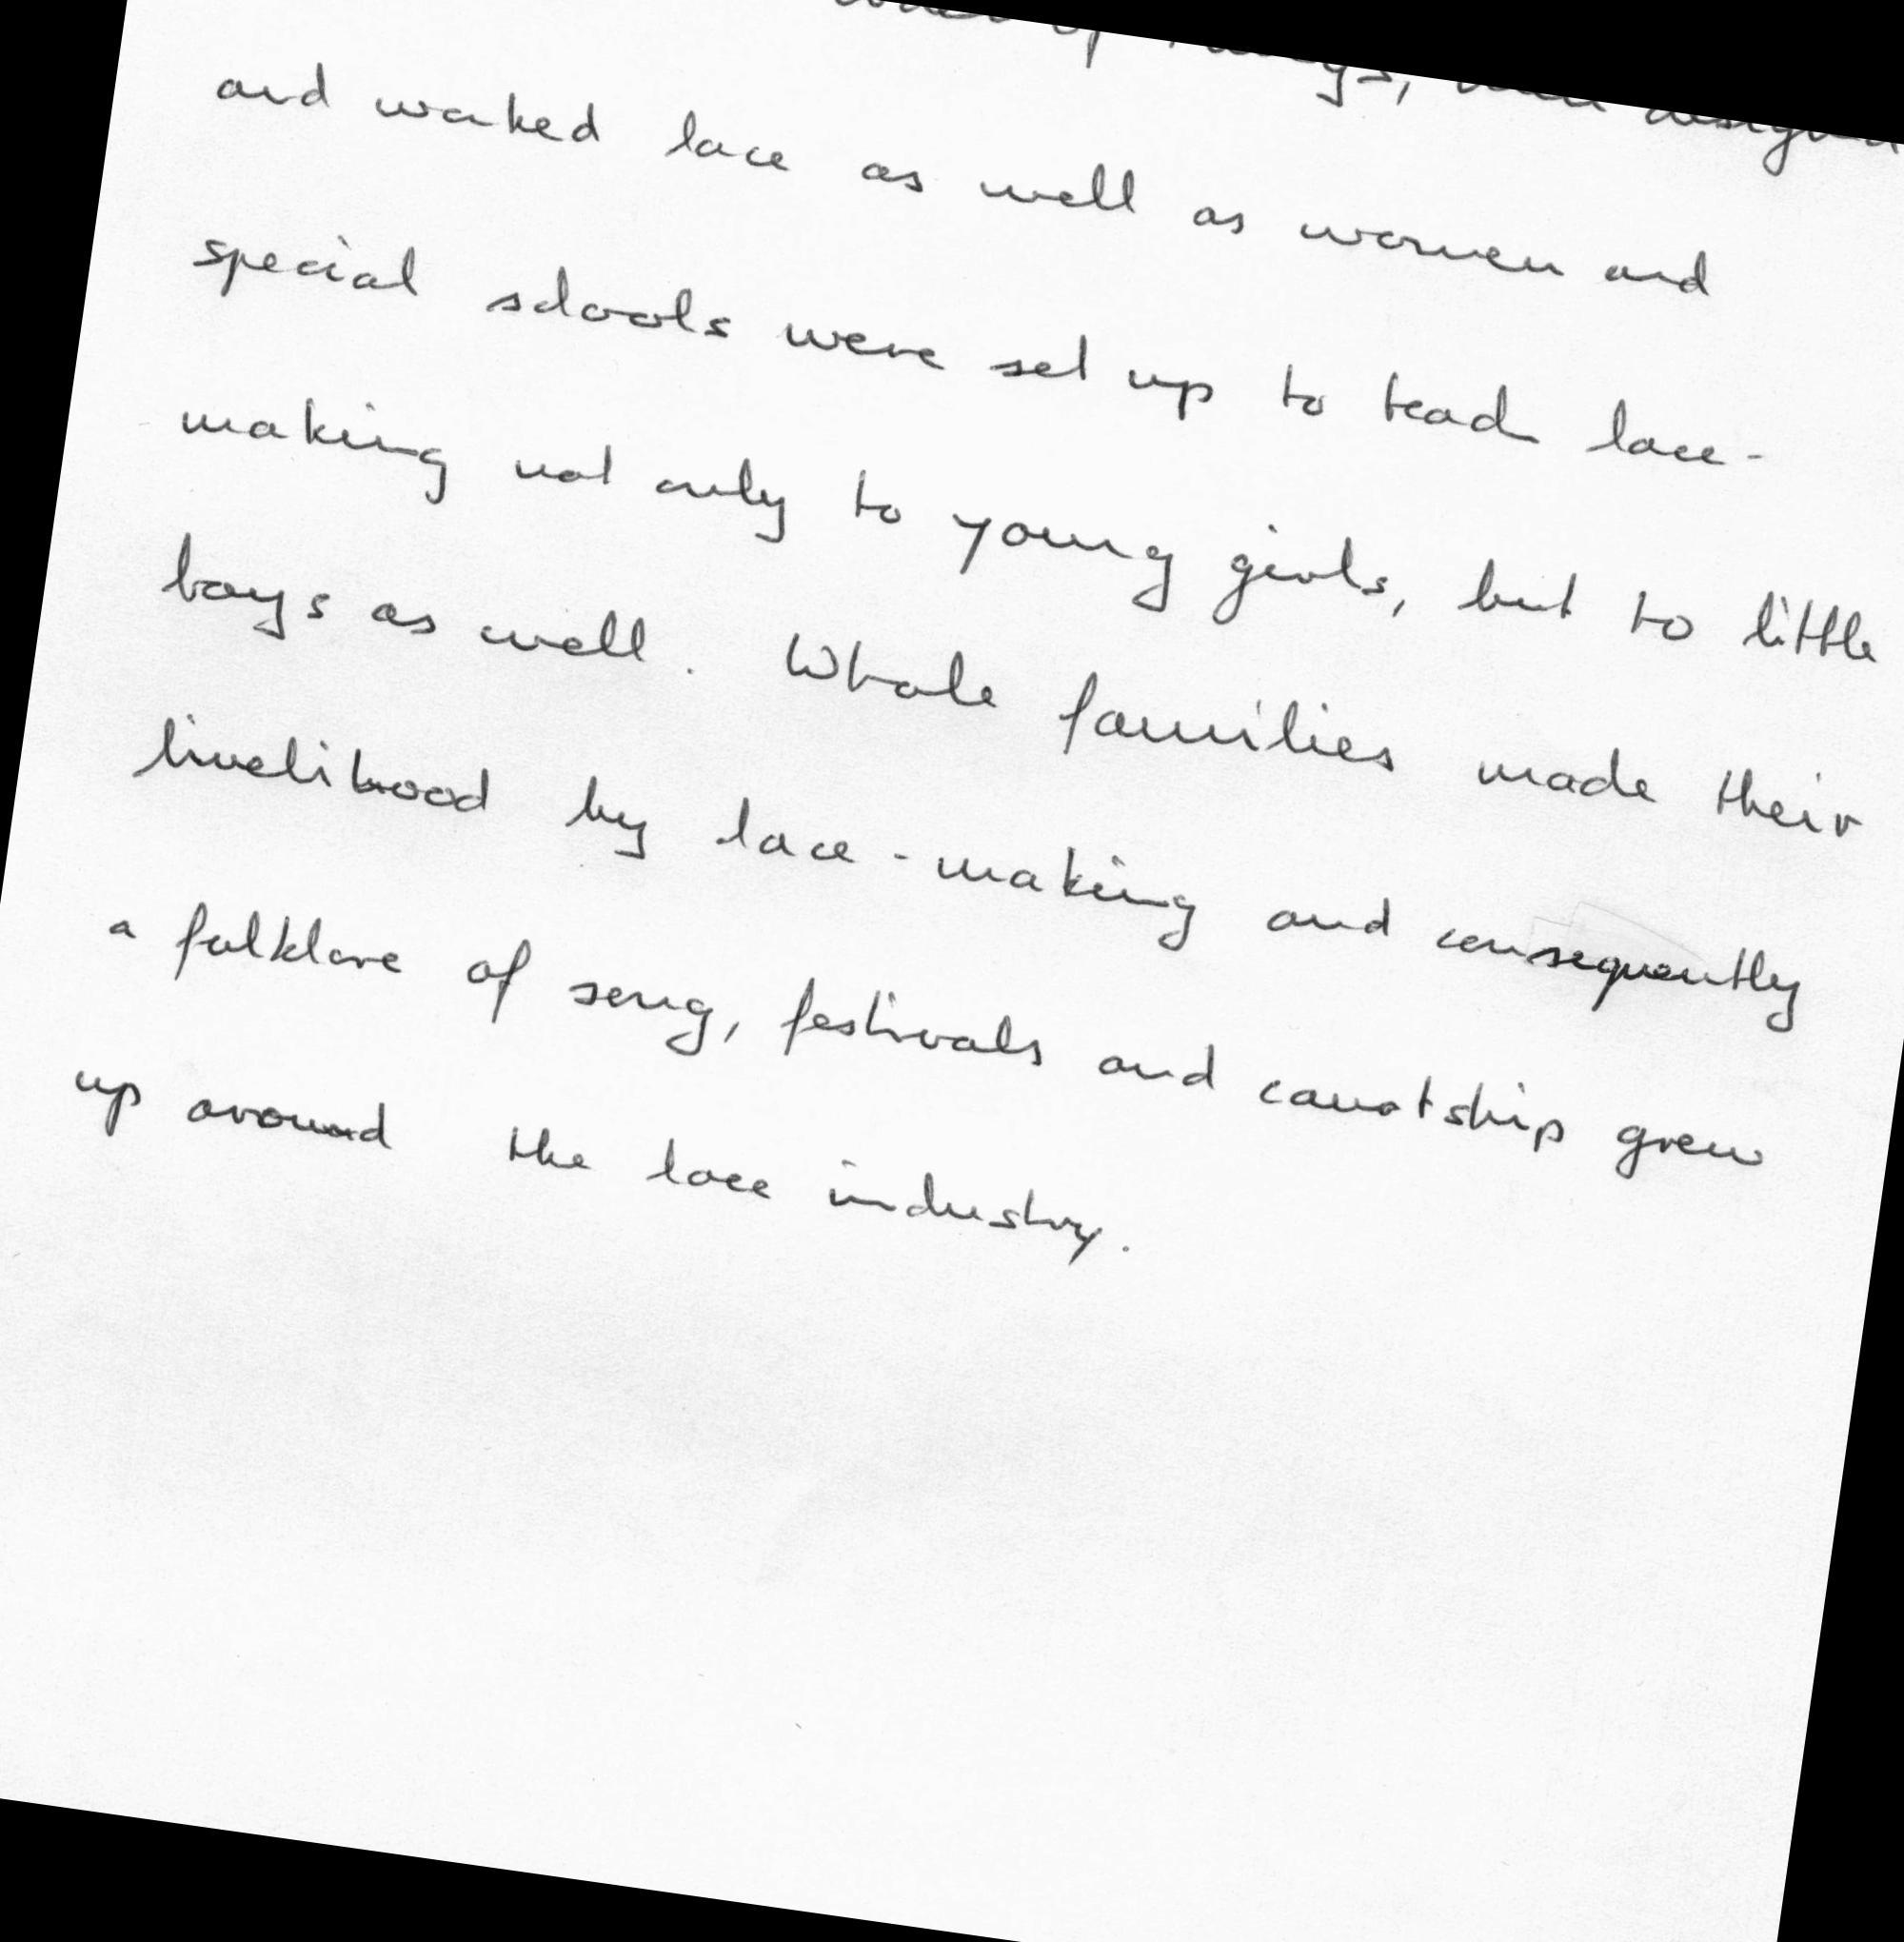 of things, men designed
and worked lace as well as women and
special schools were set up to teach lace-
making not only to young girls, but to little
boys as well. Whole families made their
livelihood by lace-making and consequently
a folklore of song, festivals and courtship grew
up around the lace industry.